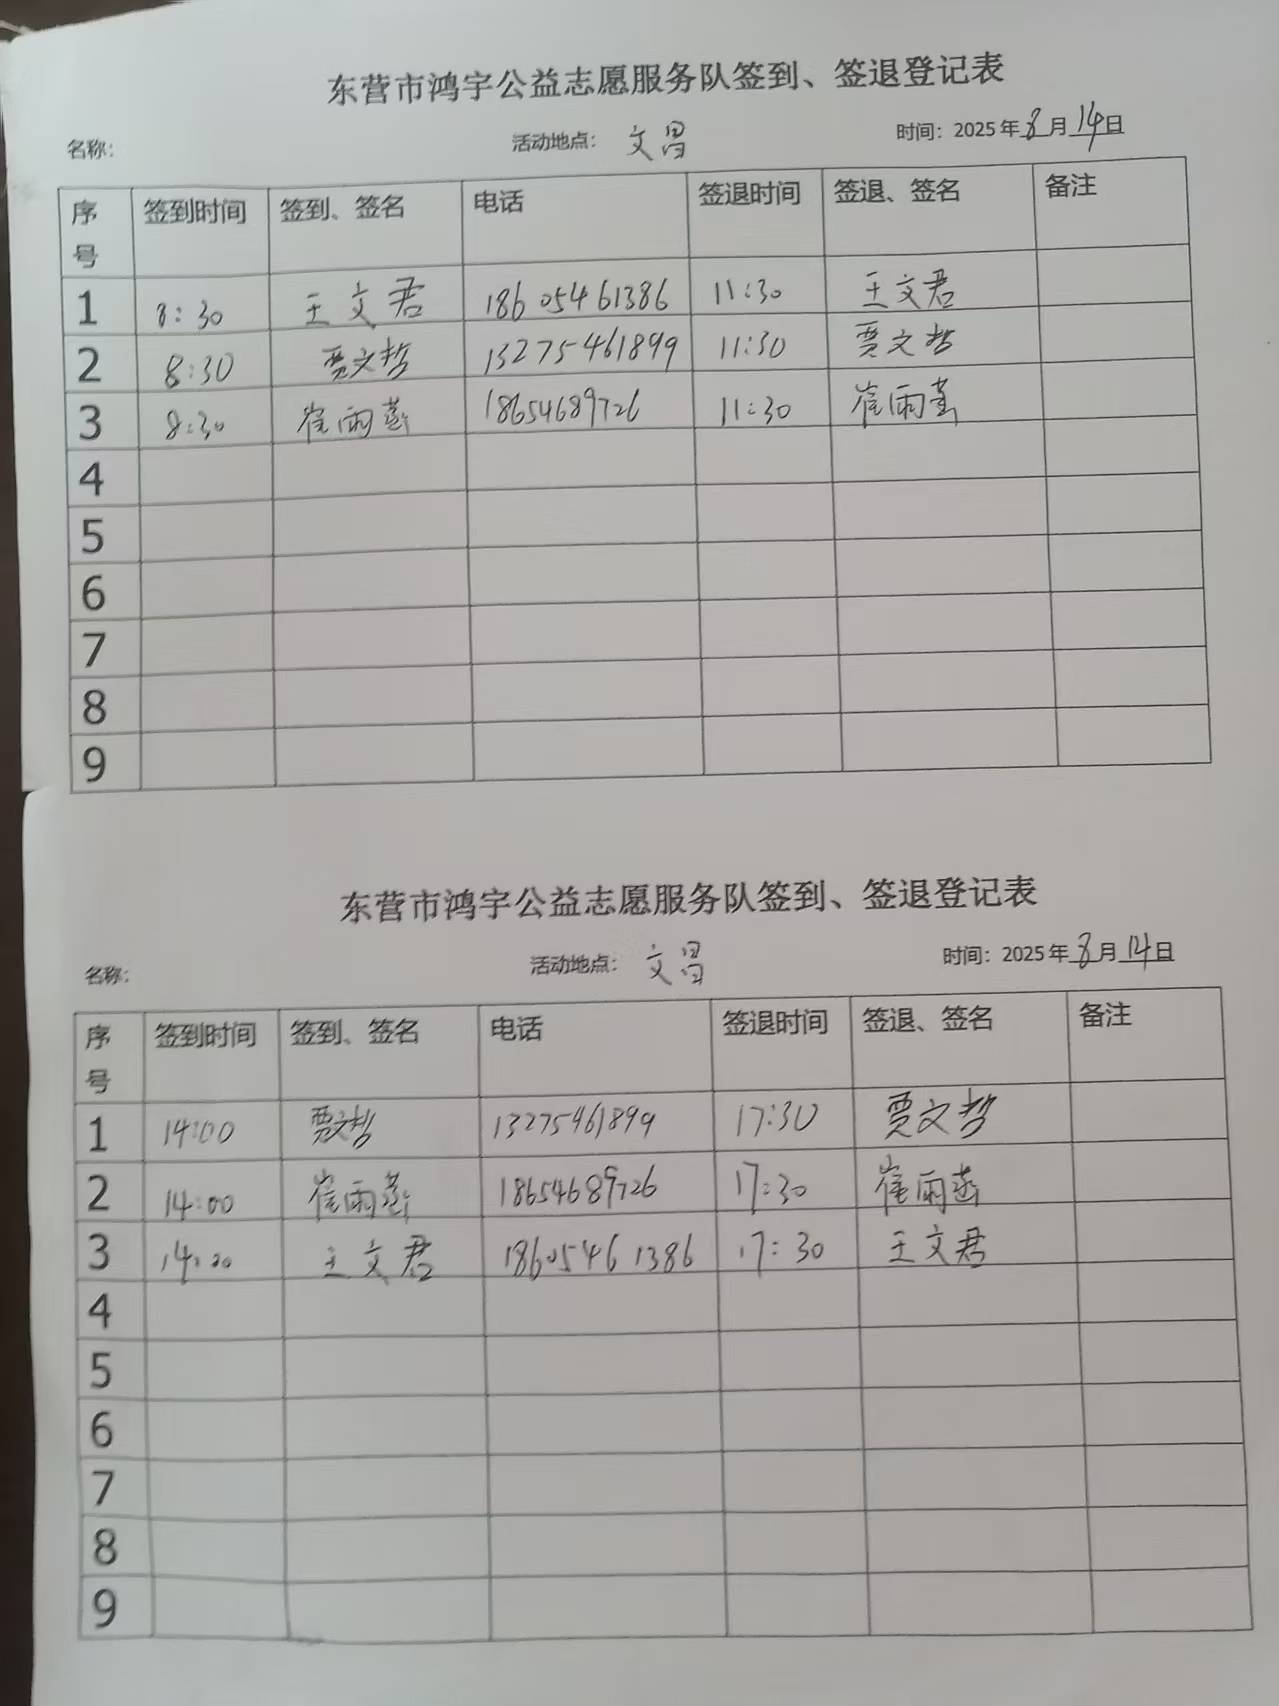 东营市鸿宇公益志愿服务队签到、签退登记表
名称： 活动地点： 文昌 时间：2025年8月14日
序号 签到时间 签到、签名 电话 签退时间 签退、签名 备注
1 8:30 王文君 18605461386 11:30 王文君
2 8:30 贾文哲 13275461899 11:30 贾文哲
3 8:30 崔雨菡 18654689726 11:30 崔雨菡
4
5
6
7
8
9
东营市鸿宇公益志愿服务队签到、签退登记表
名称： 活动地点： 文昌 时间：2025年8月14日
序号 签到时间 签到、签名 电话 签退时间 签退、签名 备注
1 14:00 贾文哲 13275461899 17:30 贾文哲
2 14:00 崔雨菡 18654689726 17:30 崔雨菡
3 14:00 王文君 18605461386 17:30 王文君
4
5
6
7
8
9